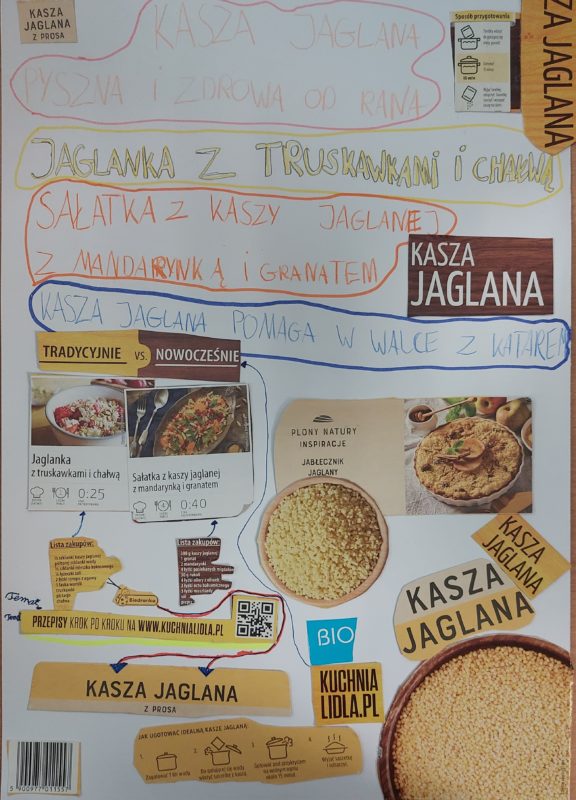 KASZA
JAGLANA
Z PROSA
KASZA JAGLANA
PYSZNA I ZDROWA OD RANA
Sposób przygotowania
ZA JAGLANA
JAGLANKA Z TRUSKAWKAMI I CHAŁWĄ
SAŁATKA Z KASZY JAGLANEJ
Z MANDARYNKĄ I GRANATEM
KASZA
JAGLANA
KASZA JAGLANA POMAGA W WALCE Z KATAREM
TRADYCYJNIE VS. NOWOCZEŚNIE
Jaglanka
z truskawkami i chałwą
0:25
Sałatka z kaszy jaglanej
z mandarynką i granatem
0:40
PLONY NATURY
INSPIRACJE
JABŁECZNIK
JAGLANY
Lista zakupów:
Lista zakupów:
Biedronka
PRZEPISY KROK PO KROKU NA WWW.KUCHNIALIDLA.PL
KASZA
JAGLANA
KASZA
JAGLANA
BIO
KUCHNIA
LIDLA.PL
KASZA JAGLANA
Z PROSA
JAK UGOTOWAĆ IDEALNĄ KASZĘ JAGLANĄ:
1. 2. 3. 4.
Zagotować 1 litr wody
5 900977 013557